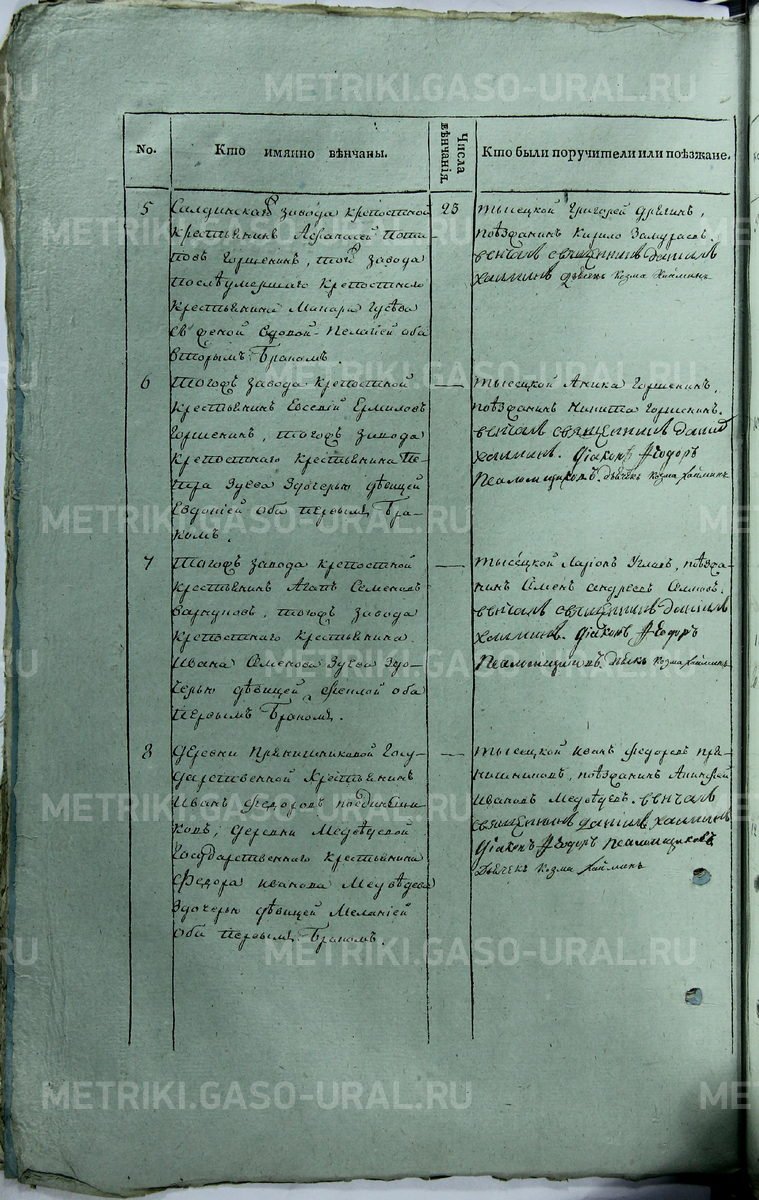 No.
Кто имянно вѣнчаны.
Числа
вѣнчанія.
Кто были поручители или поѣзжане.
5
Салдинскаго завода крепостной
крестьянинъ Афанасей Пота
повъ Горшенинъ, того завода
послѣумершаго крепостнаго
крестьянина Макара Гусева
съ женой вдовой Пелагіей оба
вторымъ Бракомъ.
23
тысецкой Григорей
поѣзжанинъ Кирило
венчалъ священникъ Даніилъ
Хаминъ дьячекъ Козма Хаминъ
6
Тогожъ завода крепостной
крестьянинъ Евсевій Ермиловъ
Горшенинъ, тогожъ завода
крепостнаго крестьянина Пе-
тра Зуева здочерью дѣвицей
Евдокіей оба первымъ Бра-
комъ.
—
тысецкой Аника Горшенинъ,
поѣзжанинъ Никита Горшенинъ.
венчалъ священникъ Даніил
Хаминъ. діаконъ Ѳеодоръ
Псаломщиковъ. дьячекъ Козма Хаминъ
7
Тогожъ завода крепостной
крестьянинъ Агапъ Семеновъ
тогожъ завода
крепостнаго крестьянина
Ивана Семенова Зуева здо-
черью дѣвицей Феклой оба
первымъ Бракомъ.
—
тысецкой Ларіонъ Углевъ, поѣзжа-
нинъ Семенъ Андреевъ
венчалъ священникъ Даніилъ
Хаминъ. діаконъ Ѳеодоръ
Псаломщиковъ. дьячекъ Козма Хаминъ
8
Деревни Пряничниковой Госу-
дарственной Крестьянинъ
Иванъ Федоровъ
ковъ, деревни Медвѣдевой
Государственнаго крестьянина
Федора Иванова Медвѣдева
здочерью дѣвицей Меланіей
оба первымъ Бракомъ.
—
тысецкой Иванъ Федоровъ Пря-
нишниковъ, поѣзжанинъ
Ивановъ Медвѣдевъ. венчалъ
священникъ Даніилъ Хаминъ
діаконъ Ѳеодоръ Псаломщиковъ
дьячекъ Козма Хаминъ
METRIKI.GASO-URAL.RU